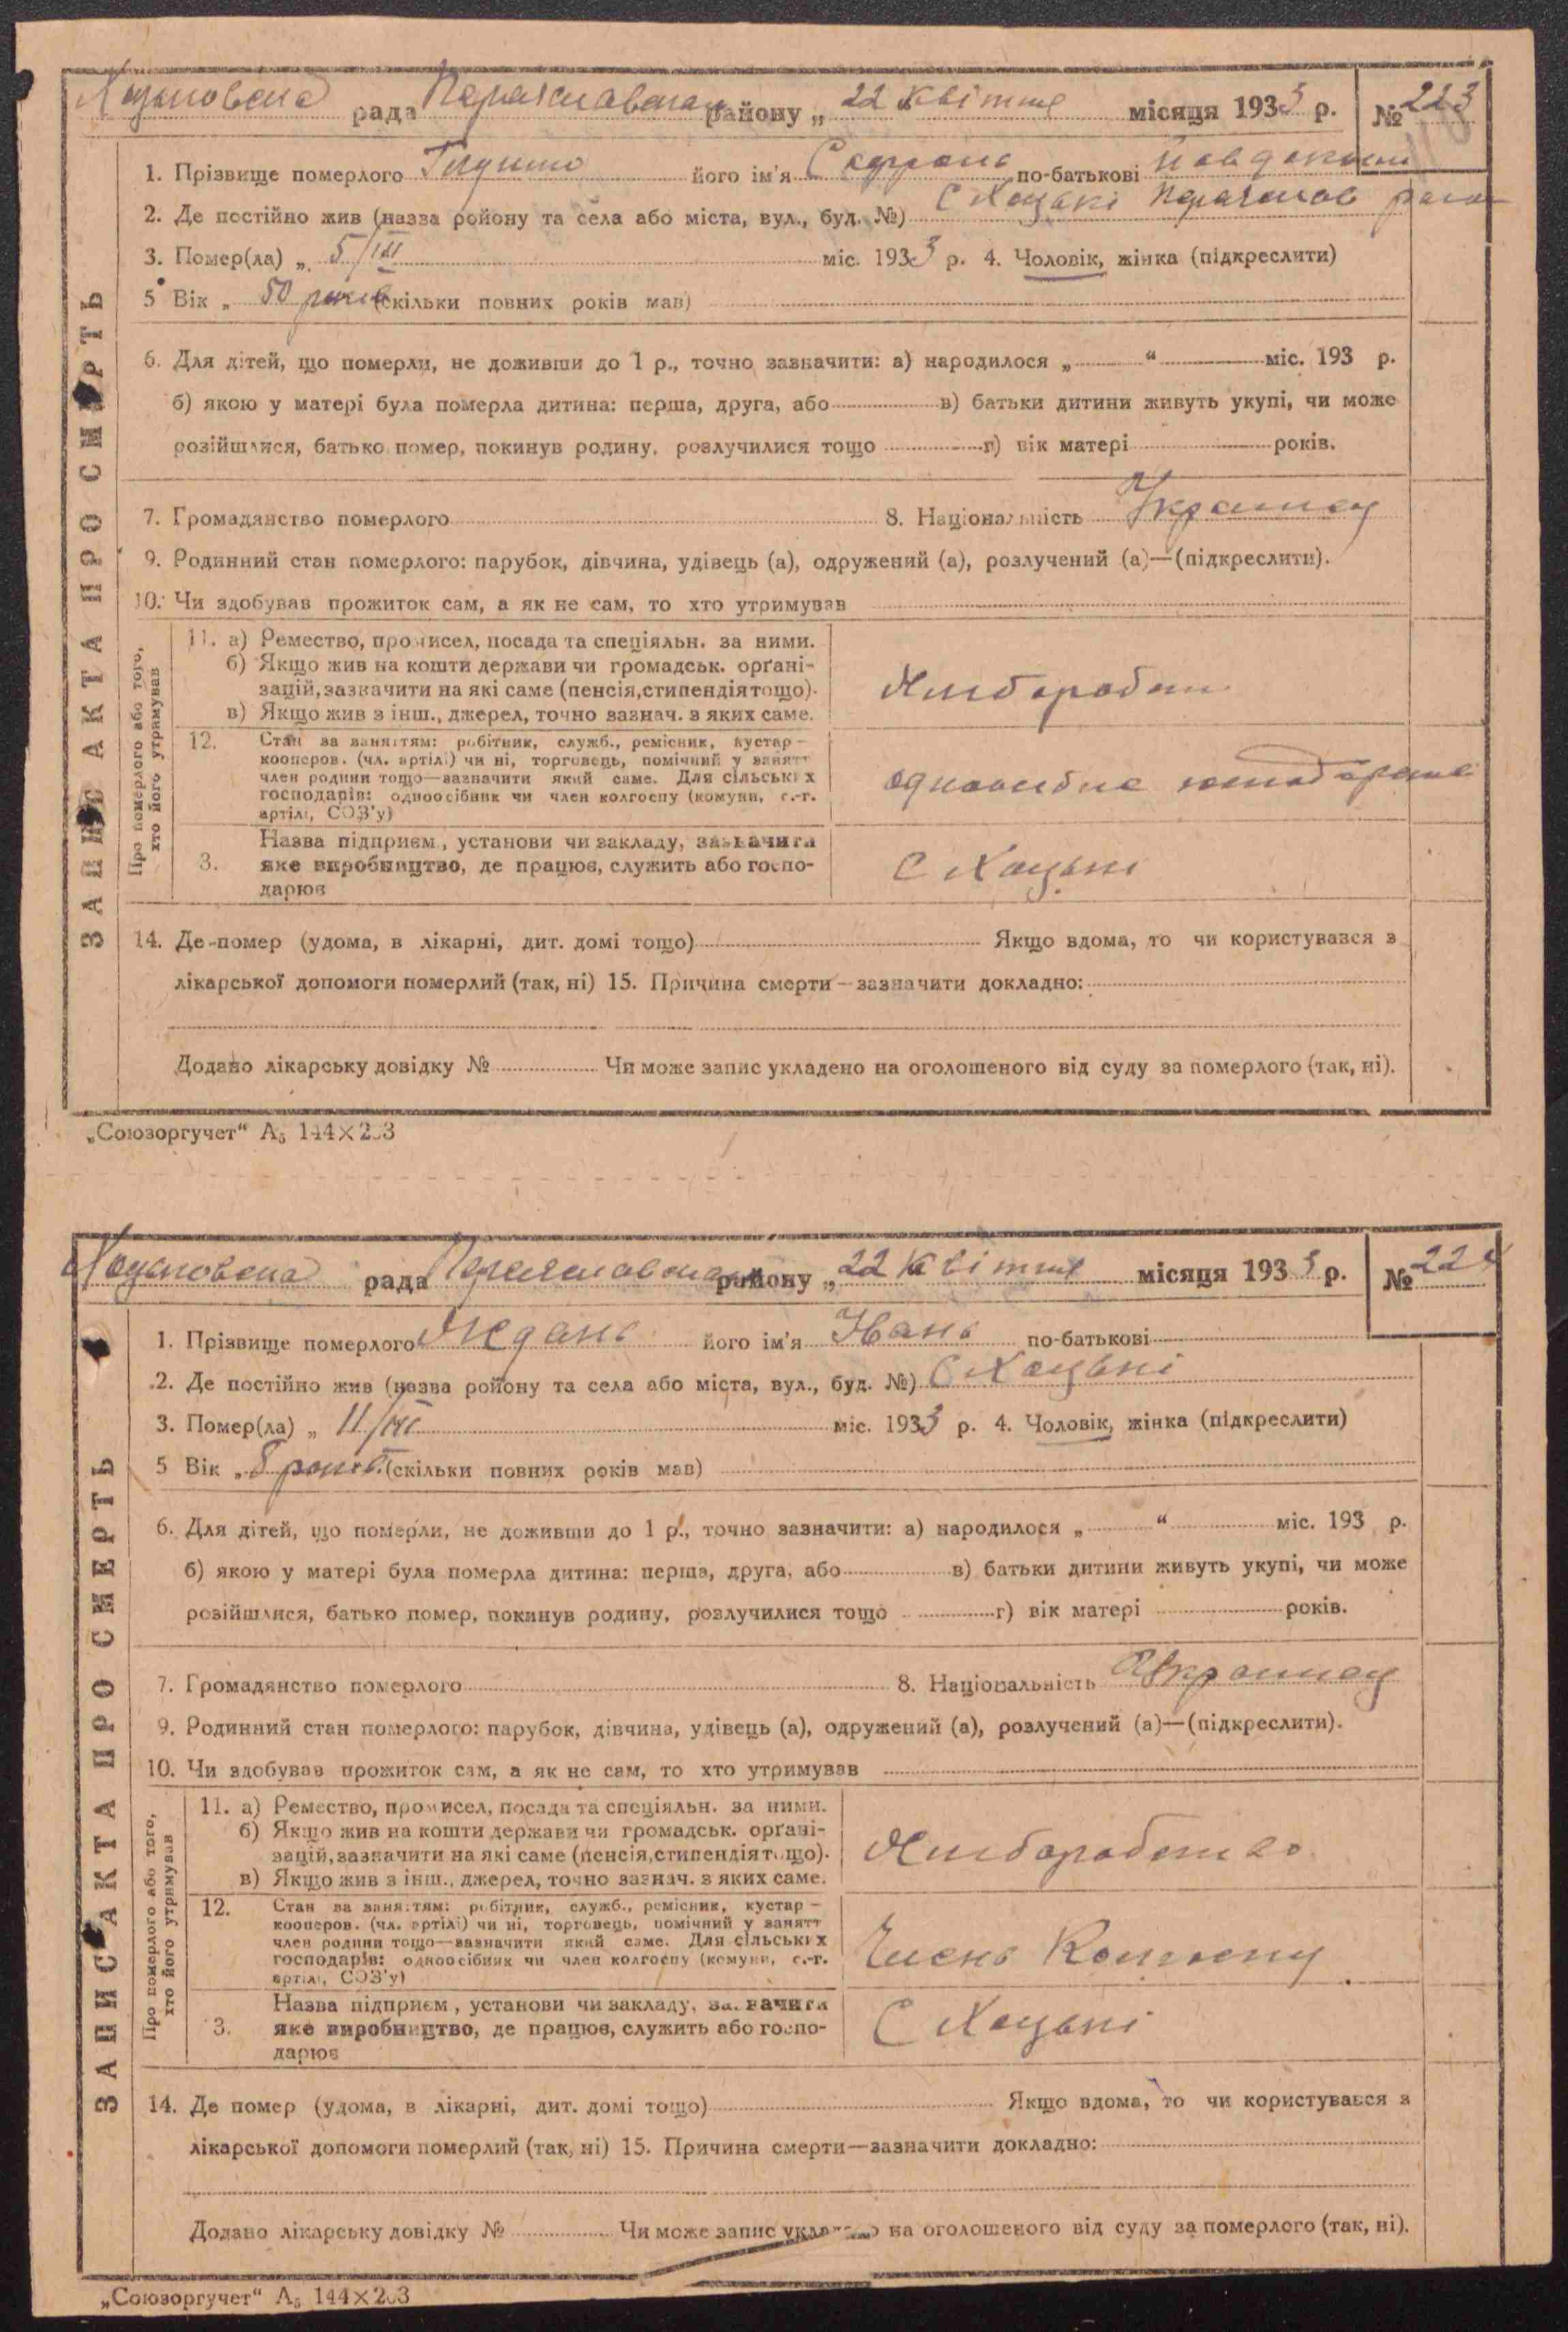 Хоцьковська рада Переяславська району „ 22 квітня місяця 1933 р. № 223
1. Прізвище померлого його ім'я по-батькові
2. Де постійно жив (назва району та села або міста, вул., буд. №) С Хоцьки Переяслав
3. Помер(ла) „ 5/III міс. 1933 р. 4. Чоловік, жінка (підкреслити)
5 Вік „ 50 років (скільки повних років мав)
6. Для дітей, що померли, не доживши до 1 р., точно зазначити: а) народилося „ “ міс. 193 р.
б) якою у матері була померла дитина: перша, друга, або в) батьки дитини живуть укупі, чи може
розійшлися, батько помер, покинув родину, розлучилися тощо г) вік матері років.
7. Громадянство померлого 8. Національність Українец
9. Родинний стан померлого: парубок, дівчина, удівець (а), одружений (а), розлучений (а)—(підкреслити).
10. Чи здобував прожиток сам, а як не сам, то хто утримував
ЗАПИС АКТА ПРО СМЕРТЬ
Про померлого або того, хто його утримував
11. а) Ремество, промисел, посада та спеціяльн. за ними.
б) Якщо жив на кошти держави чи громадськ. орґані-
зацій, зазначити на які саме (пенсія, стипендія тощо).
в) Якщо жив з інш., джерел, точно зазнач. з яких саме.
Хлібороб
12. Стан за заняттям: робітник, служб., ремісник, кустар—
кооперов. (чл. артілі) чи ні, торговець, помічний у занятт
член родини тощо—зазначити який саме. Для сільських
господарів: одноосібник чи член колгоспу (комуни, с.-г.
артілі, СОЗ'у)
одноосібне
3. Назва підприєм., установи чи закладу, зазначити
яке виробництво, де працює, служить або госпо-
дарює
С Хоцьки
14. Де помер (удома, в лікарні, дит. домі тощо) Якщо вдома, то чи користувався з
лікарської допомоги померлий (так, ні) 15. Причина смерти—зазначити докладно:
Додано лікарську довідку № Чи може запис укладено на оголошеного від суду за померлого (так, ні).
„Союзоргучет“ А5 144×203
Хоцьковська рада Переяславська району „ 22 квітня місяця 1933 р. № 224
1. Прізвище померлого Ждань його ім'я Івань по-батькові
2. Де постійно жив (назва району та села або міста, вул., буд. №) С Хоцьки
3. Помер(ла) „ 11/III міс. 1933 р. 4. Чоловік, жінка (підкреслити)
5 Вік „ 5 років (скільки повних років мав)
6. Для дітей, що померли, не доживши до 1 р., точно зазначити: а) народилося „ “ міс. 193 р.
б) якою у матері була померла дитина: перша, друга, або в) батьки дитини живуть укупі, чи може
розійшлися, батько помер, покинув родину, розлучилися тощо г) вік матері років.
7. Громадянство померлого 8. Національність Українец
9. Родинний стан померлого: парубок, дівчина, удівець (а), одружений (а), розлучений (а)—(підкреслити).
10. Чи здобував прожиток сам, а як не сам, то хто утримував
ЗАПИС АКТА ПРО СМЕРТЬ
Про померлого або того, хто його утримував
11. а) Ремество, промисел, посада та спеціяльн. за ними.
б) Якщо жив на кошти держави чи громадськ. орґані-
зацій, зазначити на які саме (пенсія, стипендія тощо).
в) Якщо жив з інш., джерел, точно зазнач. з яких саме.
Хліборобство
12. Стан за заняттям: робітник, служб., ремісник, кустар—
кооперов. (чл. артілі) чи ні, торговець, помічний у занятт
член родини тощо—зазначити який саме. Для сільських
господарів: одноосібник чи член колгоспу (комуни, с.-г.
артілі, СОЗ'у)
Член Колгоспу
3. Назва підприєм., установи чи закладу, зазначити
яке виробництво, де працює, служить або госпо-
дарює
С Хоцьки
14. Де помер (удома, в лікарні, дит. домі тощо) Якщо вдома, то чи користувався з
лікарської допомоги померлий (так, ні) 15. Причина смерти—зазначити докладно:
Додано лікарську довідку № Чи може запис укладено на оголошеного від суду за померлого (так, ні).
„Союзоргучет“ А5 144×203